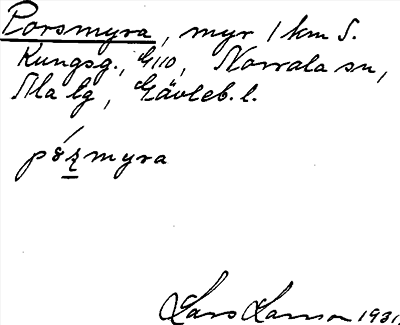 Porsmyra, myr 1 km S.
Kungsg., G110, Norrala sn,
Ala lg, Gävleb. l.
myra
Lars Larsson 1931.